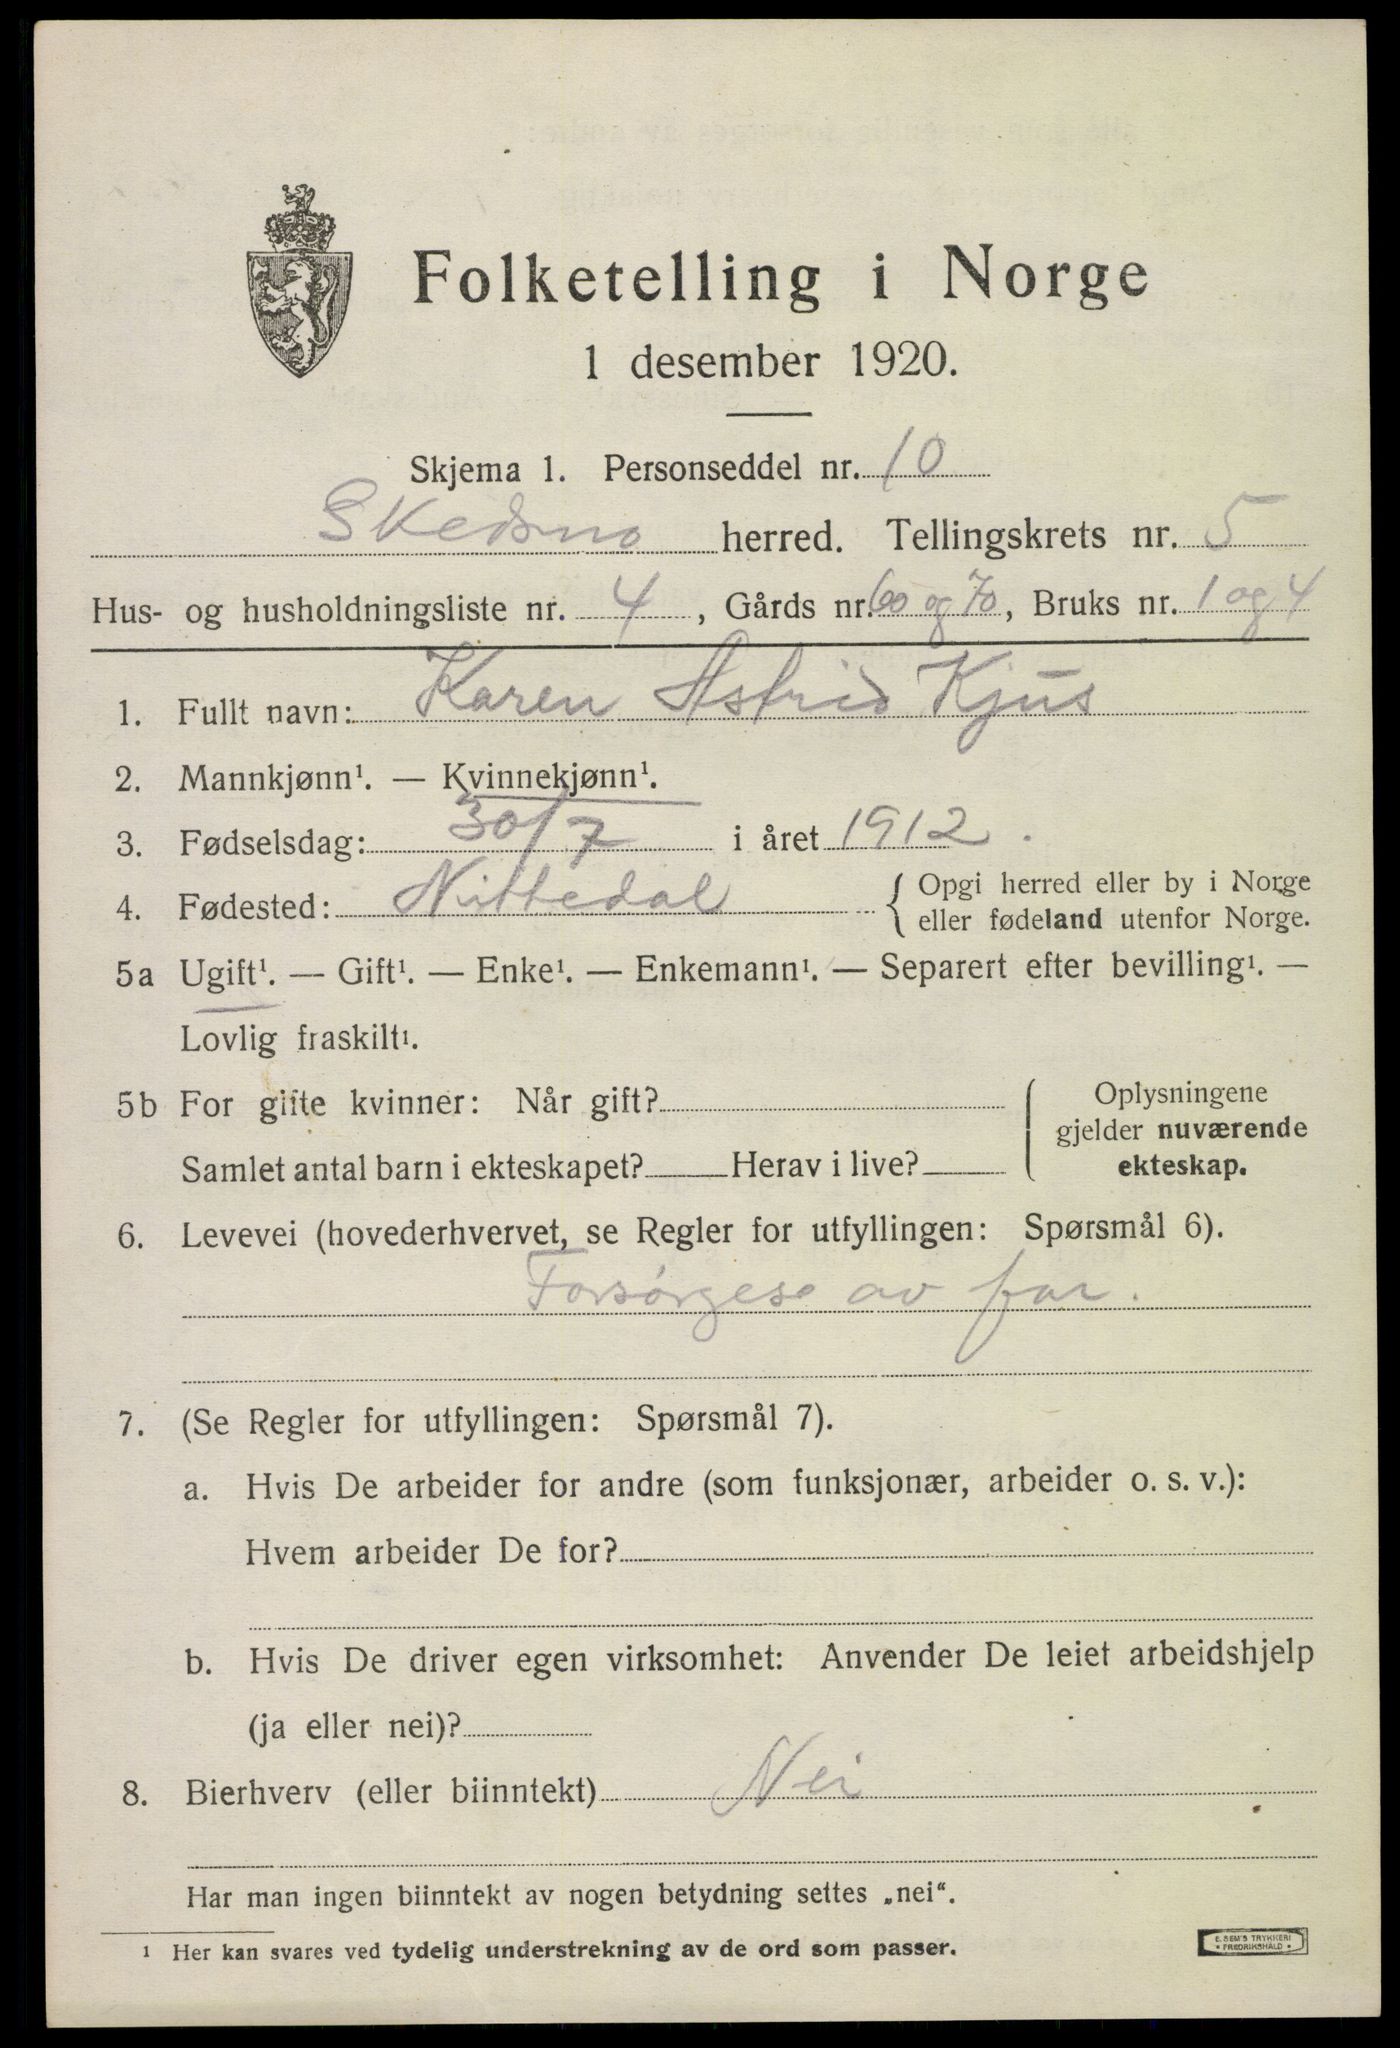 Folketelling i Norge
1 desember 1920.
Skjema 1. Personseddel nr. 10
Skedsmo herred. Tellingskrets nr. 5
Hus- og husholdningsliste nr. 4, Gårds nr. 60 og 70, Bruks nr. 1 og 4
1. Fullt navn: Karen Astrid Kjus
2. Mannkjønn¹. — Kvinnekjønn¹.
3. Fødselsdag: 30/7 i året 1912.
4. Fødested: Nittedal { Opgi herred eller by i Norge
eller fødeland utenfor Norge.
5a Ugift¹. — Gift¹. — Enke¹. — Enkemann¹. — Separert efter bevilling¹. —
Lovlig fraskilt¹.
5b For gifte kvinner: Når gift? { Oplysningene
gjelder nuværende
Samlet antal barn i ekteskapet? Herav i live? ekteskap.
6. Levevei (hovederhvervet, se Regler for utfyllingen: Spørsmål 6).
Forsørgese av far.
7. (Se Regler for utfyllingen: Spørsmål 7).
a. Hvis De arbeider for andre (som funksjonær, arbeider o. s. v.):
Hvem arbeider De for?
b. Hvis De driver egen virksomhet: Anvender De leiet arbeidshjelp
(ja eller nei)?
8. Bierhverv (eller biinntekt) Nei
Har man ingen biinntekt av nogen betydning settes „nei“.
¹ Her kan svares ved tydelig understrekning av de ord som passer.
E. SEM'S TRYKKERI
• FREDRIKSHALD •